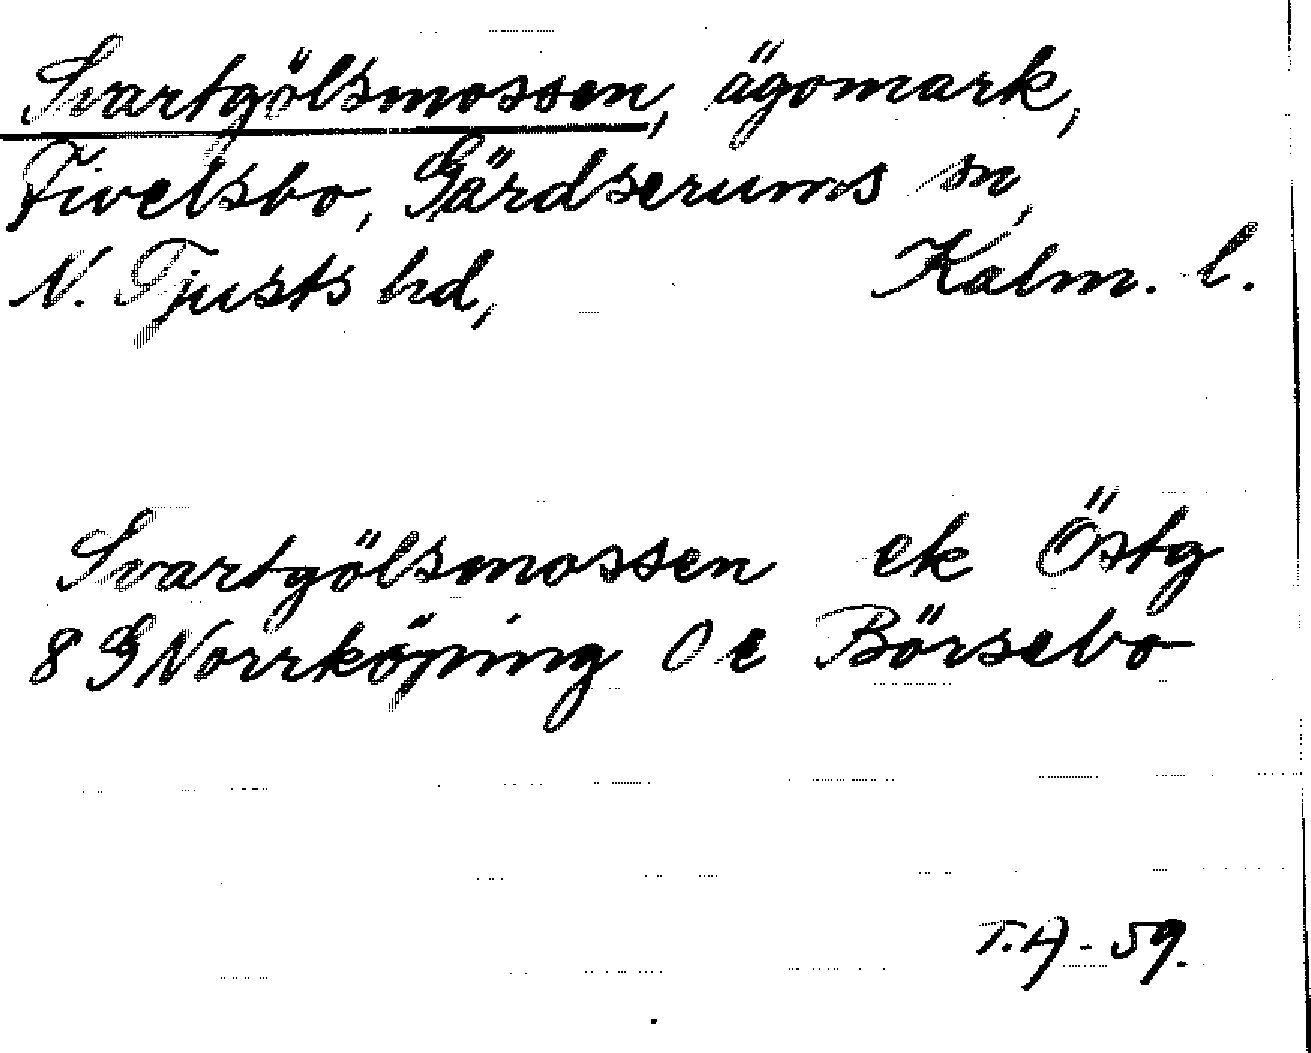 Svartgölsmossen, ägomark,
Fivelsbo, Gärdserums sn,
N. Tjusts hd, Kalm. l.
Svartgölsmossen ek Östg
8 G Norrköping 0 e Börsebo
T.A - 59.